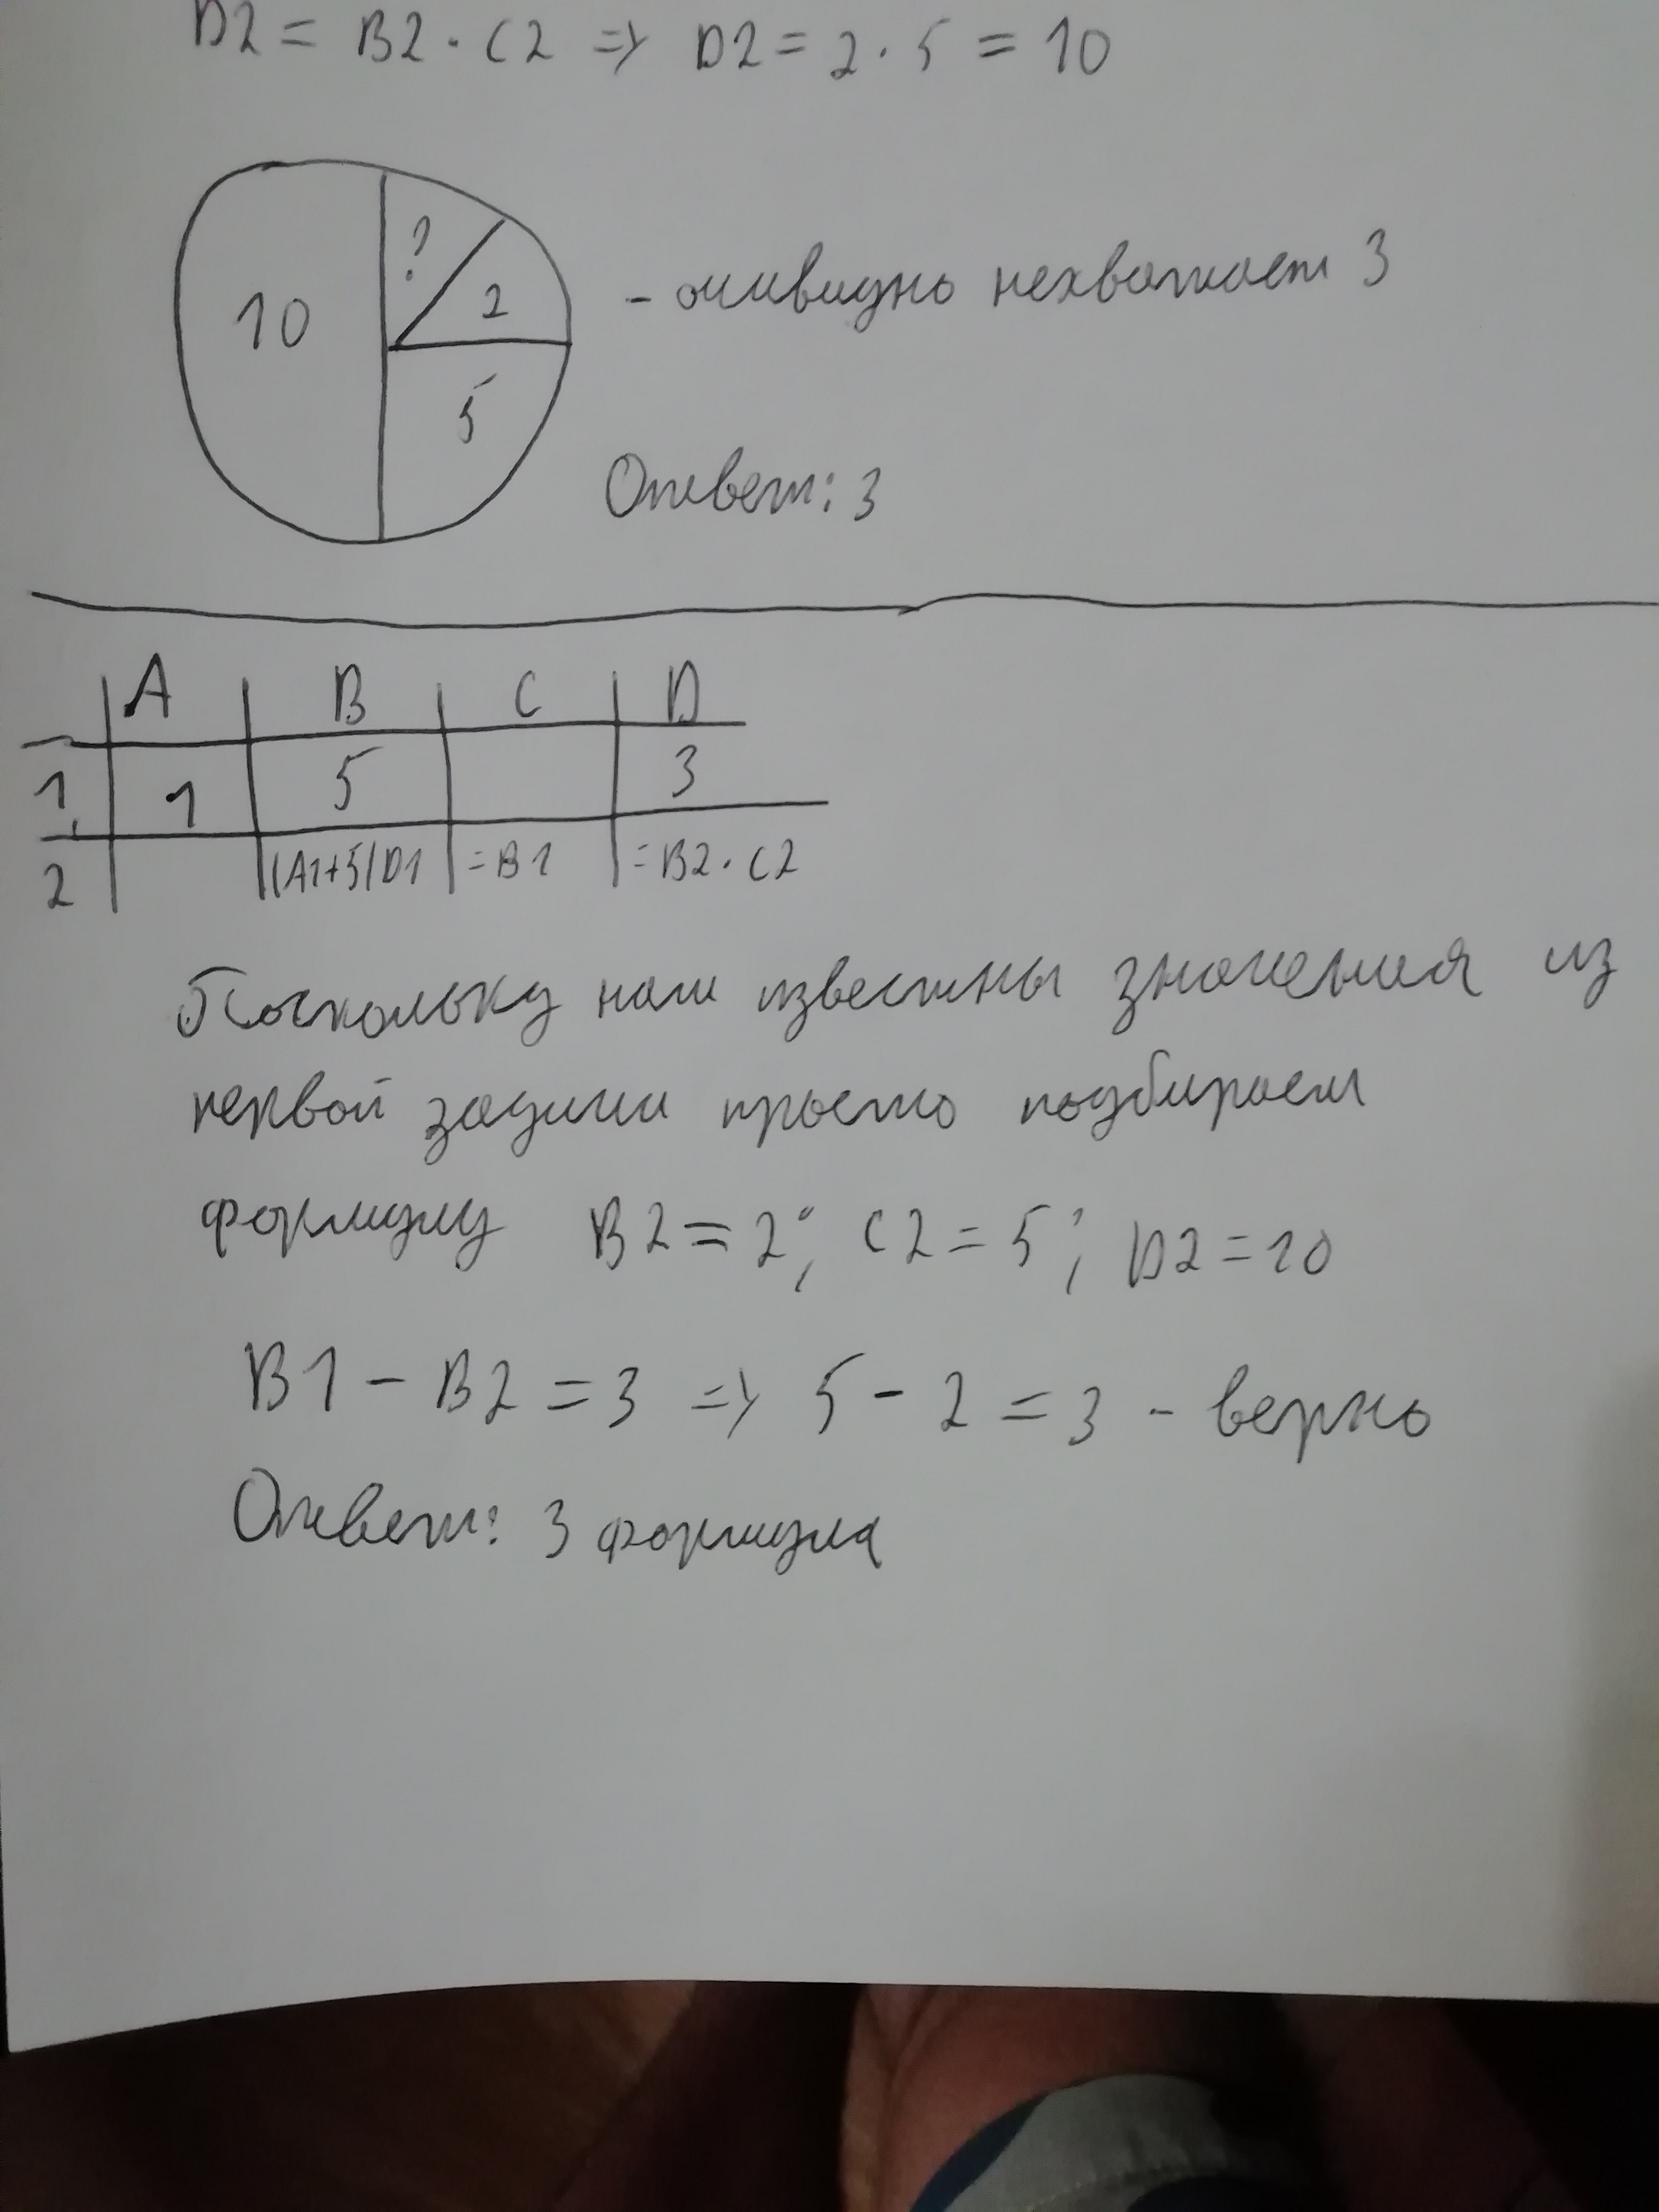 D2 = B2 · C2 => D2 = 2 · 5 = 10
?
10
2
5
- очивидно нехватает 3
Ответ: 3
A B C D
1 1 5 3
2 (A1+5)D1 =B1 =B2·C2
Поскольку нам известны значения из
первой задачи просто подбираем
формулу B2=2; C2=5; D2=10
B1 - B2 = 3 => 5 - 2 = 3 - верно
Ответ: 3 формула